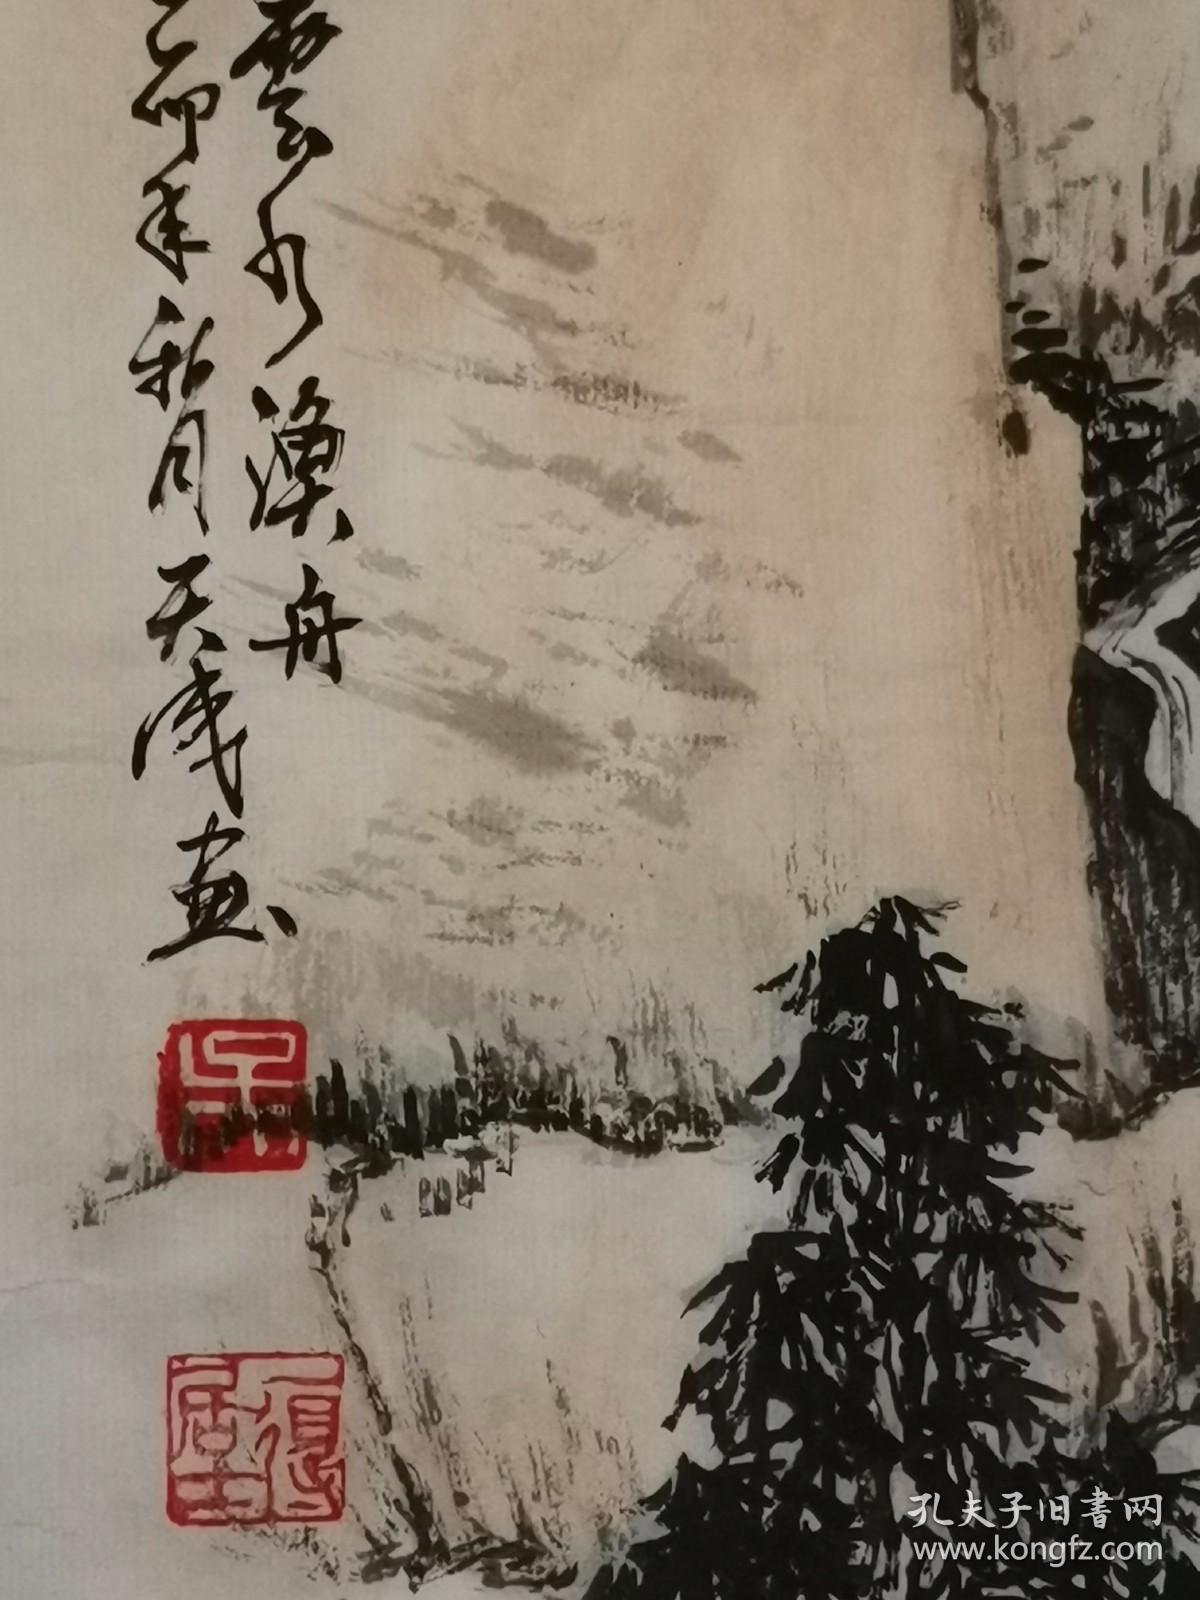 雲水漁舟
乙卯年秋月天成画
孔夫子旧書网
www.kongfz.com